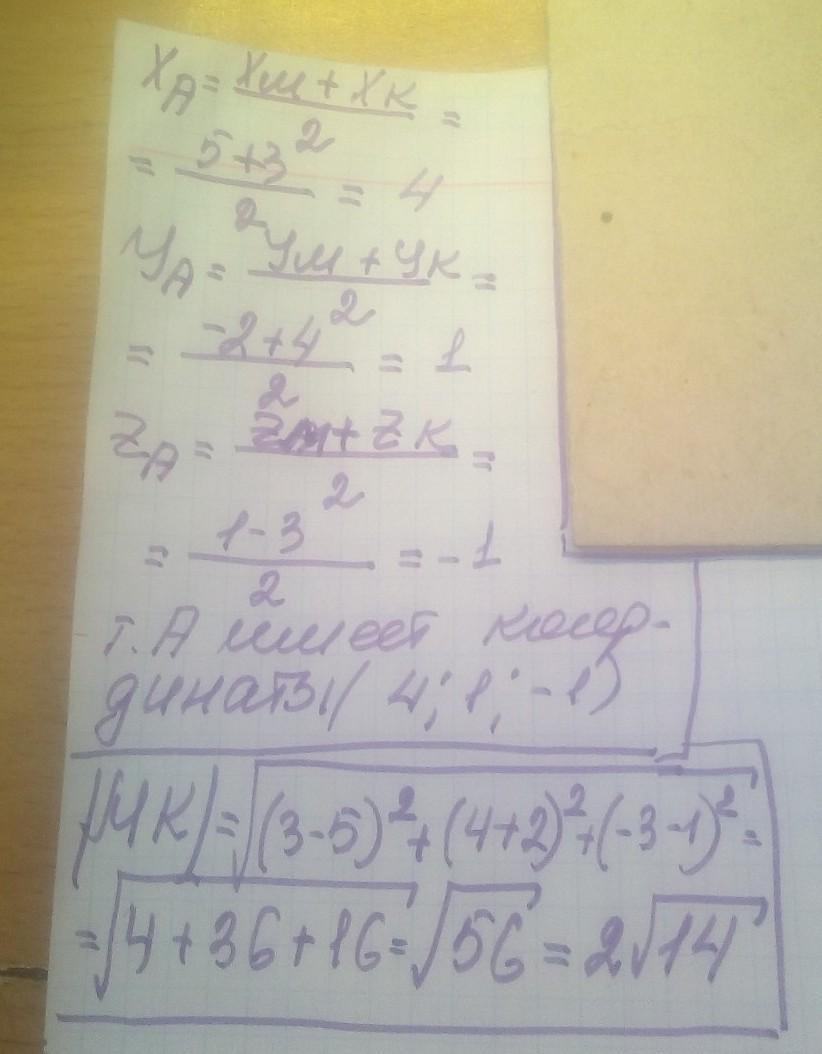 X_A = (X_M + X_K)/2 =
= (5+3)/2 = 4
Y_A = (Y_M + Y_K)/2 =
= (-2+4)/2 = 1
Z_A = (Z_M + Z_K)/2 =
= (1-3)/2 = -1
т. А имеет коор-
динаты (4; 1; -1)
|МК| = √((3-5)² + (4+2)² + (-3-1)²) =
= √(4+36+16) = √56 = 2√14